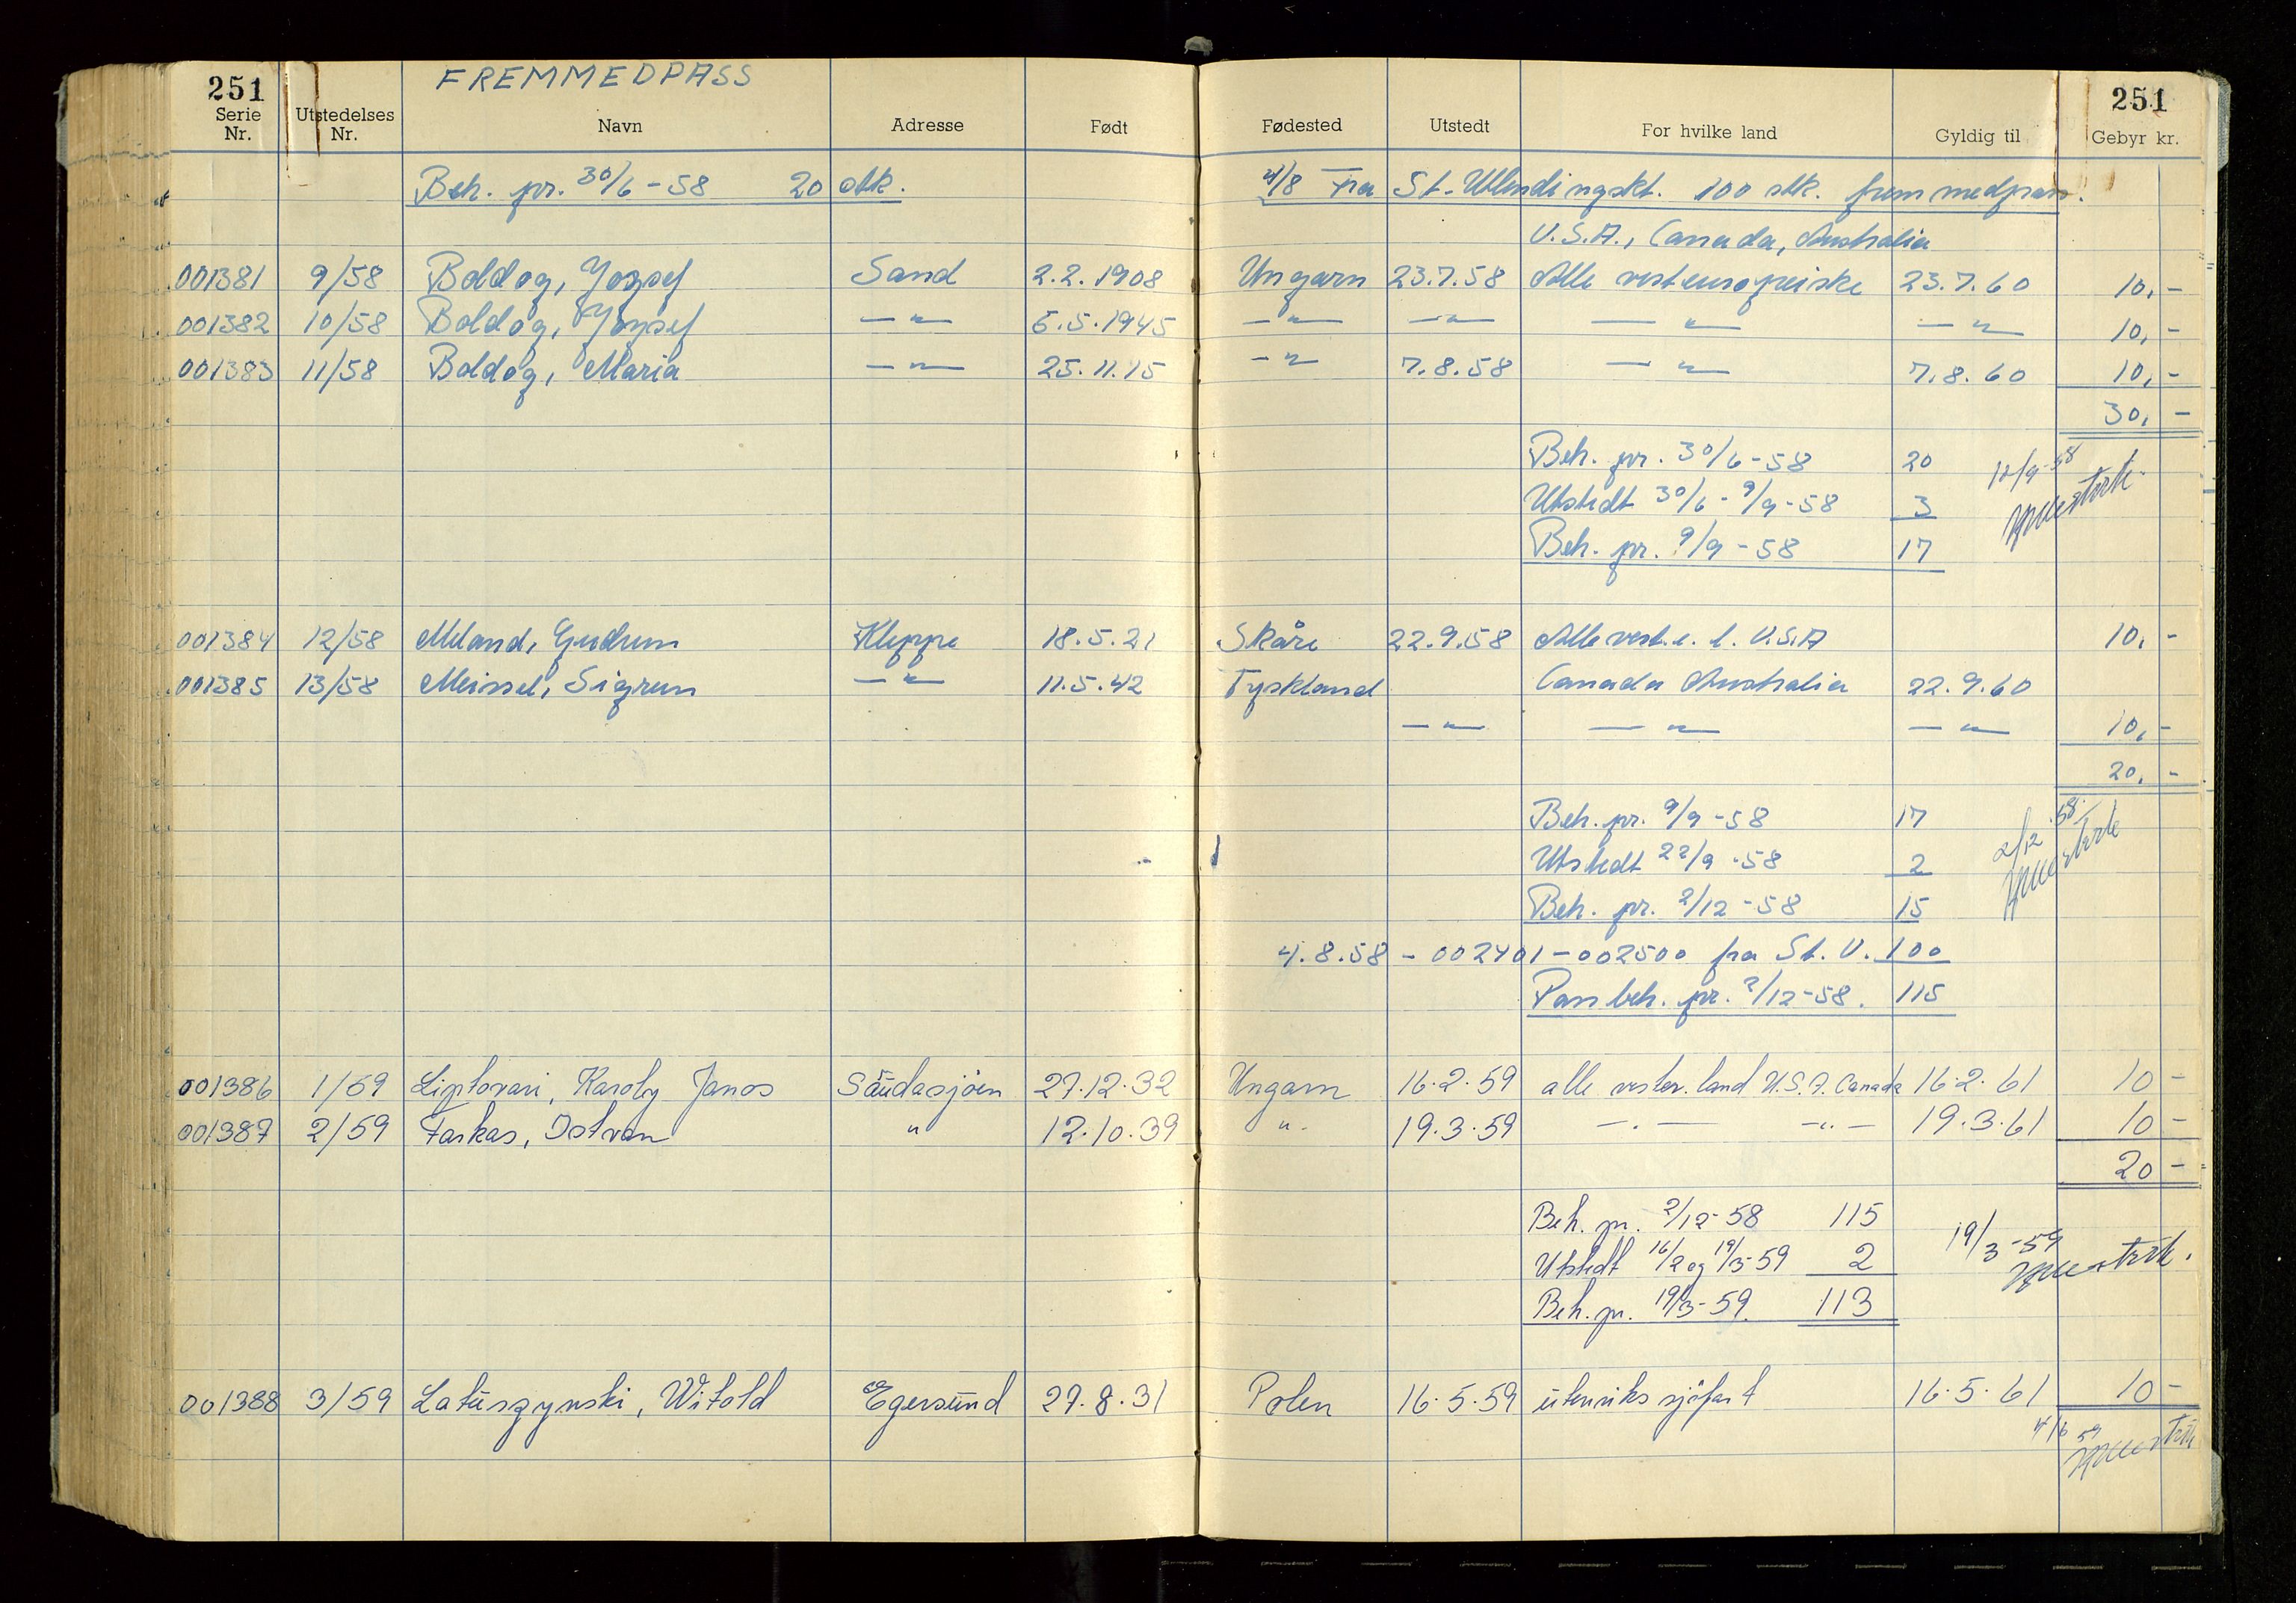 251 FREMMEDPASS 251
Serie Nr. Utstedelses Nr. Navn Adresse Født Fødested Utstedt For hvilke land Gyldig til Gebyr kr.
Beh. pr. 30/6-58 20 stk. 4/8 Fra St. Utlendingskt. 100 stk. fremmedpass.
U.S.A., Canada, Australia
001381 9/58 Boldog, Jozsef Sand 2.2.1908 Ungarn 23.7.58 Alle vesteuropeiske 23.7.60 10,-
001382 10/58 Boldog, Jozsef -"- 6.5.1945 -"- -"- -"- -"- 10,-
001383 11/58 Boldog, Maria -"- 25.11.15 -"- 7.8.58 -"- 7.8.60 10,-
30,-
Beh. pr. 30/6-58 20 12/9-58
Utstedt 30/6-9/9-58 3
Beh. pr. 9/9-58 17
001384 12/58 Meland, Gudrun Kleppe 18.5.21 Skåre 22.9.58 Alle vest.e.l. U.S.A 10,-
001385 13/58 Meissel, Sigrun -"- 11.5.42 Tyskland Canada Australia 22.9.60
-"- -"- -"- 10,-
20,-
Beh. pr. 9/9-58 17
Utstedt 22/9-58 2 2/12-58
Beh. pr. 2/12-58 15
4.8.58 - 002401-002500 fra St. U. 100
Pass beh. pr. 2/12-58. 115
001386 1/59 Liptovari, Karoly Janos Saudasjøen 27.12.32 Ungarn 16.2.59 alle vester. land U.S.A. Canada 16.2.61 10-
001387 2/59 Farkas, Istvan " 12.10.39 ". 19.3.59 -.- -"- 19.3.61 10-
20-
Beh. pr. 2/12-58 115
Utstedt 16/2 og 19/3-59 2 19/3-59
Beh. pr. 19/3-59. 113
001388 3/59 Latuszynski, Witold Egersund 27.8.31 Polen 16.5.59 utenriks sjøfart 16.5.61 10-
4/6 59